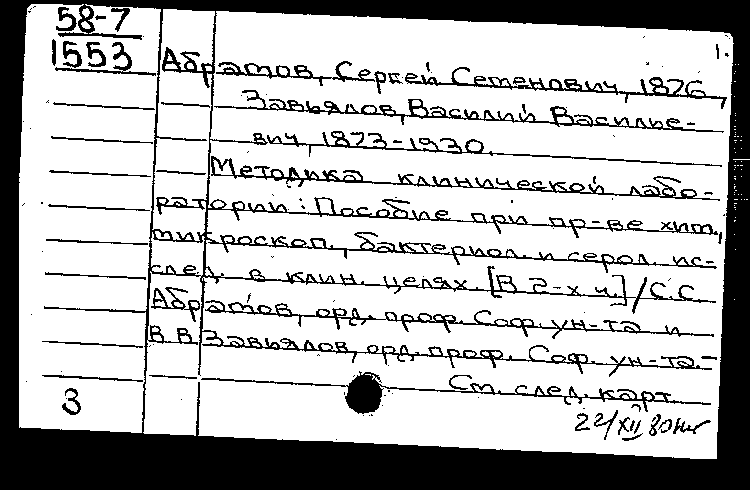 58-7
1553
1.
Абрамов, Сергей Семенович, 1876,
Завьялов, Василий Василье-
вич, 1873-1930.
Методика клинической лабо-
ратории: Пособие при пр-ве хим.,
микроскоп., бактериол. и серол. ис-
след. в клин. целях. [В 2-х ч.] / С.С.
Абрамов, орд. проф. Соф. ун-та и
В.В. Завьялов, орд. проф. Соф. ун-та.-
См. след. карт.
3
22/XII